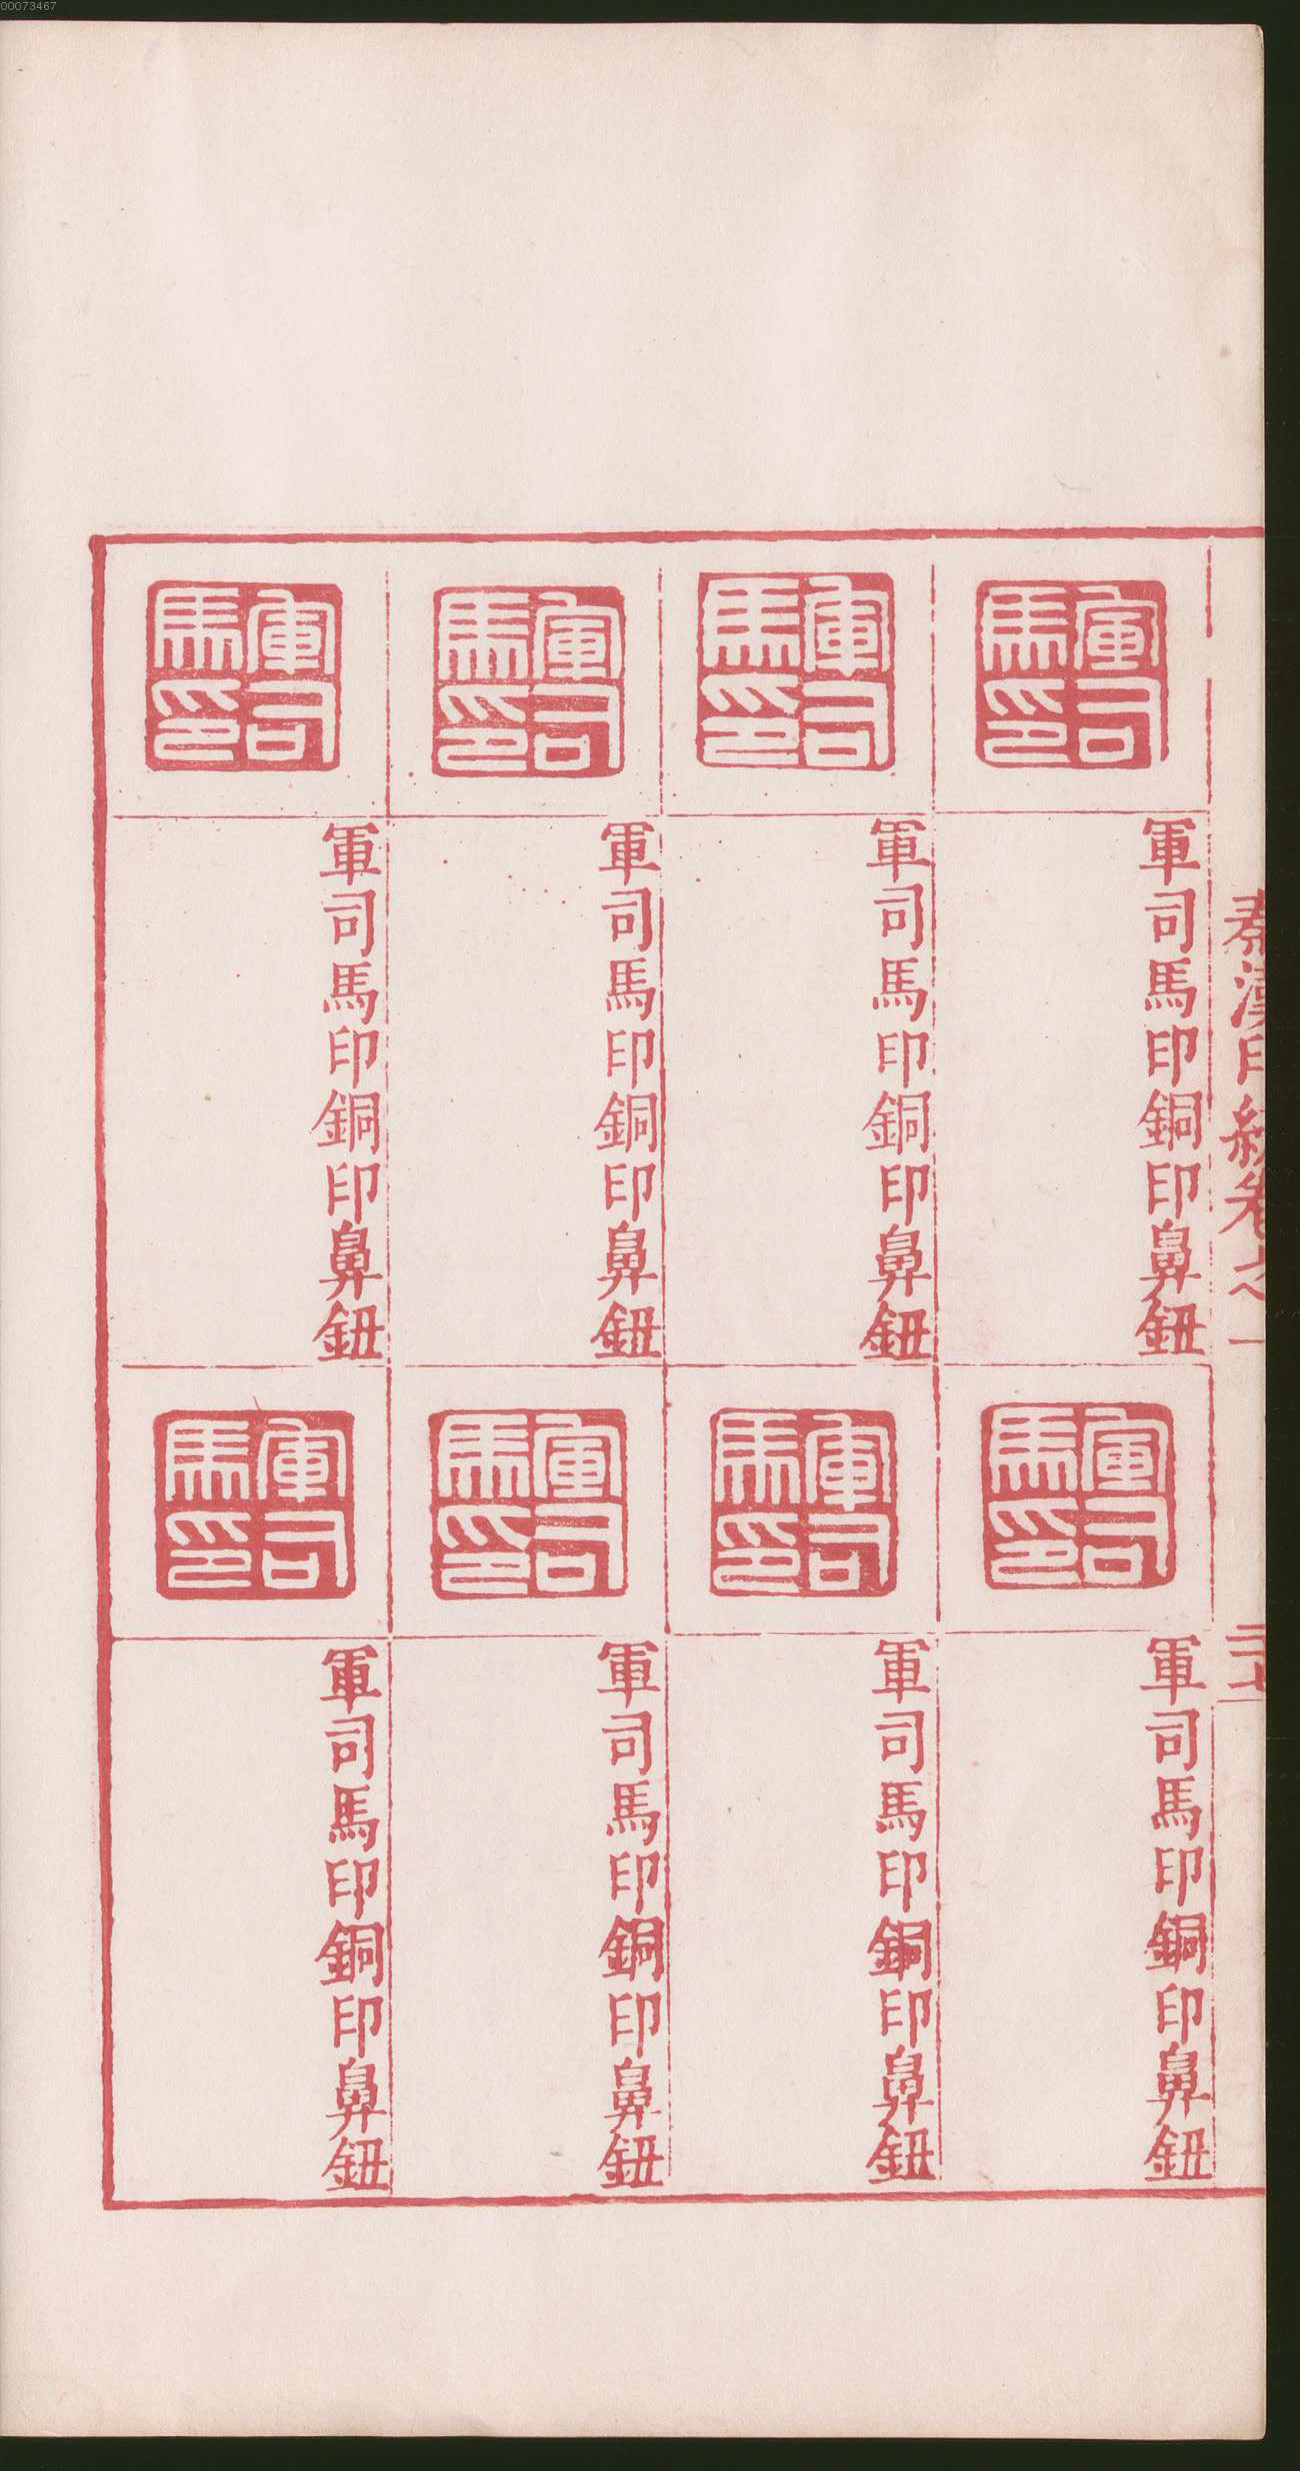 00073467
秦漢印統卷之一
二十七
軍司馬印
軍司馬印銅印鼻鈕
軍司馬印
軍司馬印銅印鼻鈕
軍司馬印
軍司馬印銅印鼻鈕
軍司馬印
軍司馬印銅印鼻鈕
軍司馬印
軍司馬印銅印鼻鈕
軍司馬印
軍司馬印銅印鼻鈕
軍司馬印
軍司馬印銅印鼻鈕
軍司馬印
軍司馬印銅印鼻鈕